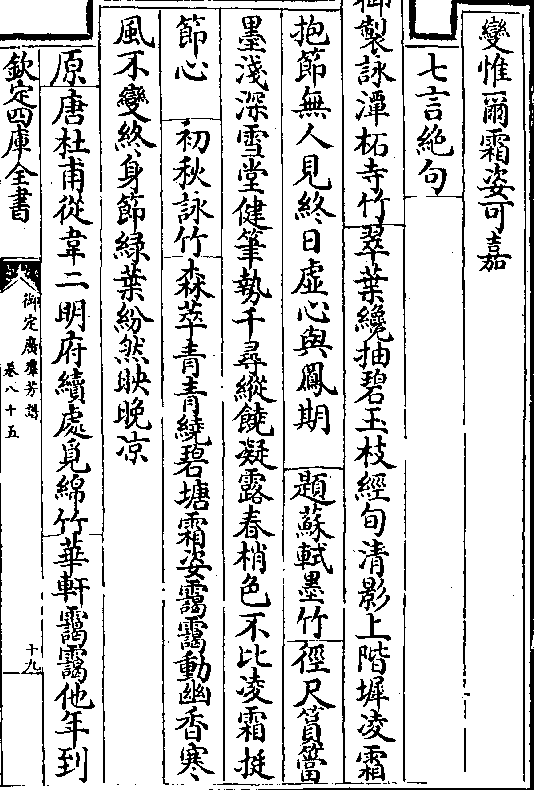 變惟爾霜姿可嘉
七言絶句
御製詠潭柘寺竹翠葉纔抽碧玉枝經旬清影上階墀凌霜
抱節無人見終日虛心與鳳期 題蘇軾墨竹徑尺篔簹
墨淺深雪堂健筆勢千尋縱饒凝露春梢色不比凌霜挺
節心 初秋詠竹森萃青青繞碧塘霜姿靄靄動幽香寒
風不變終身節緑葉紛然映晚凉
原唐杜甫從韋二明府續處覓綿竹華軒靄靄他年到
欽定四庫全書
御定廣羣芳譜
卷八十五
十九